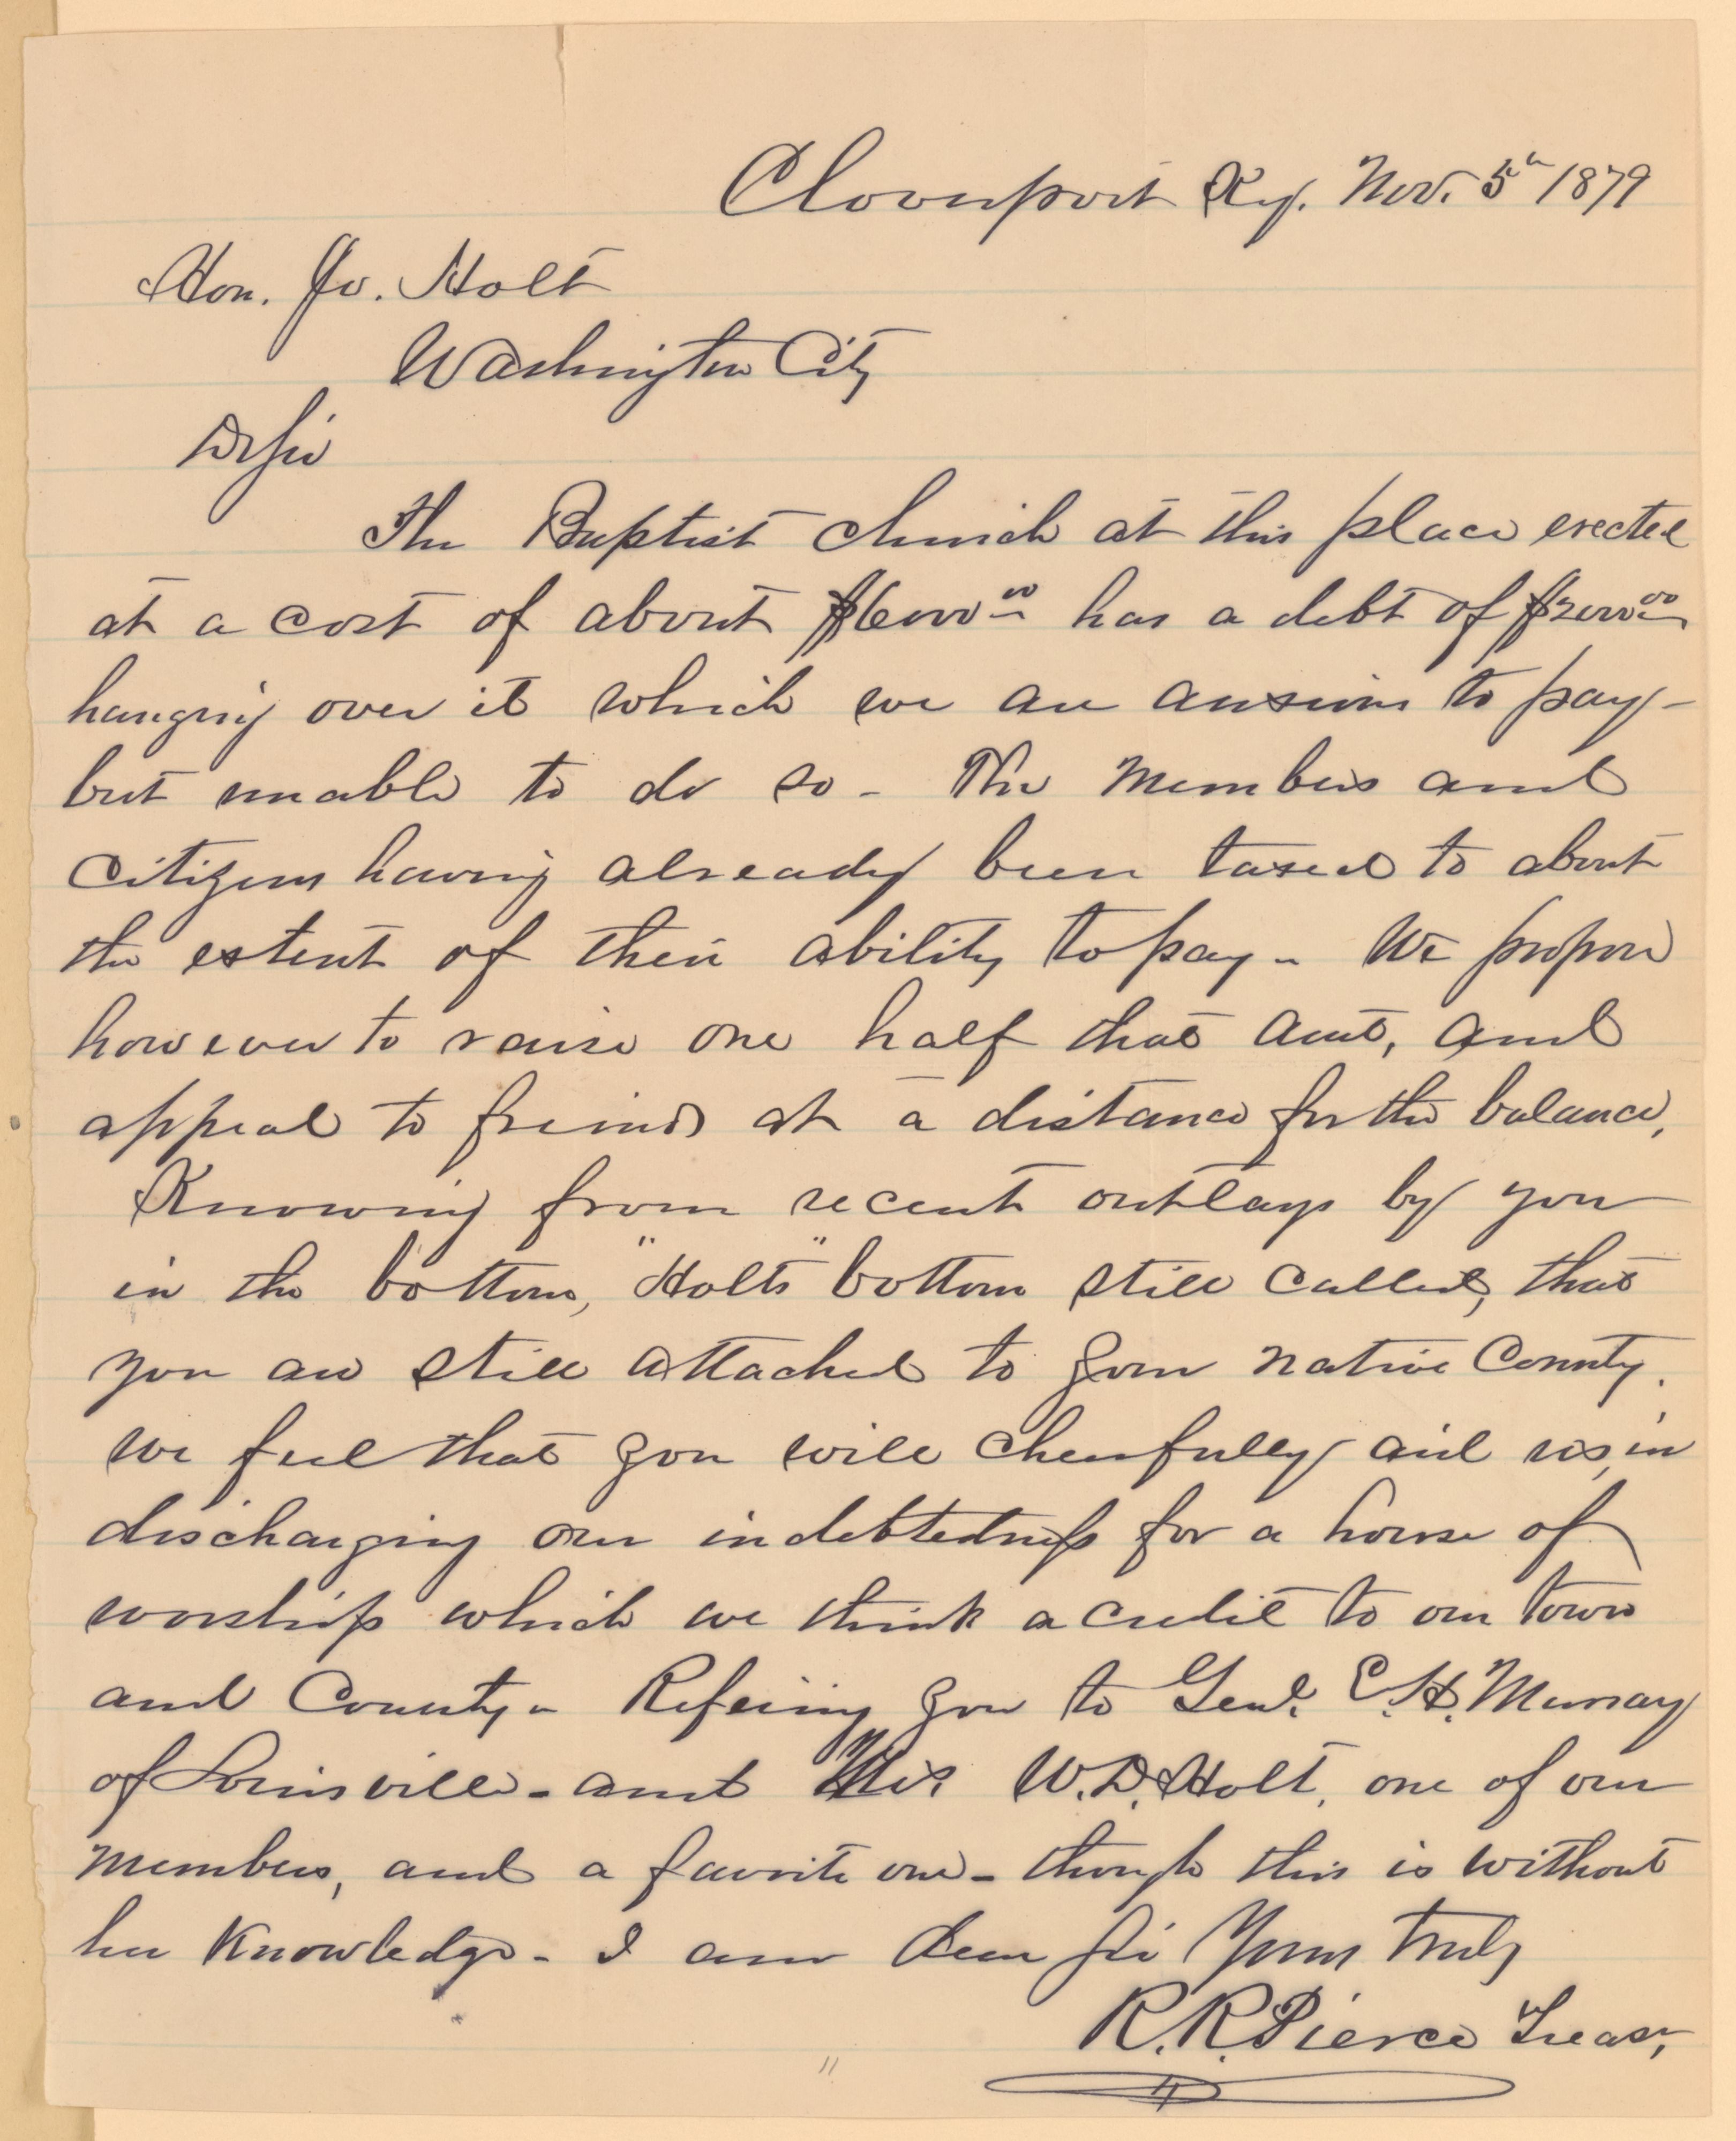 Cloverport Ky. Nov. 5th 1879
Hon. Jo. Holt
Washington City
Dr Sir
The Baptist church at this place erected
at a cost of about $6000.00 has a debt of $2000.00
hanging over it which we are anxious to pay -
but unable to do so - The members and
citizens having already been taxed to about
the extent of their ability to pay - We propose
however to raise one half that amt, and
appeal to freinds at a distance for the balance,
Knowing from recent outlays by you
in the bottom, "Holts" bottom still called, that
you are still attached to your native County.
we feel that you will cheerfully aid us, in
discharging our indebtedness for a house of
worship which we think a credit to our town
and County - Refering you to Genl. E. H. Murray
of Louisville - and Mrs. W. D. Holt, one of our
members, and a favorite one - though this is without
her Knowledge - I am dear Sir Yours truly
R. R. Pierce Treasr,